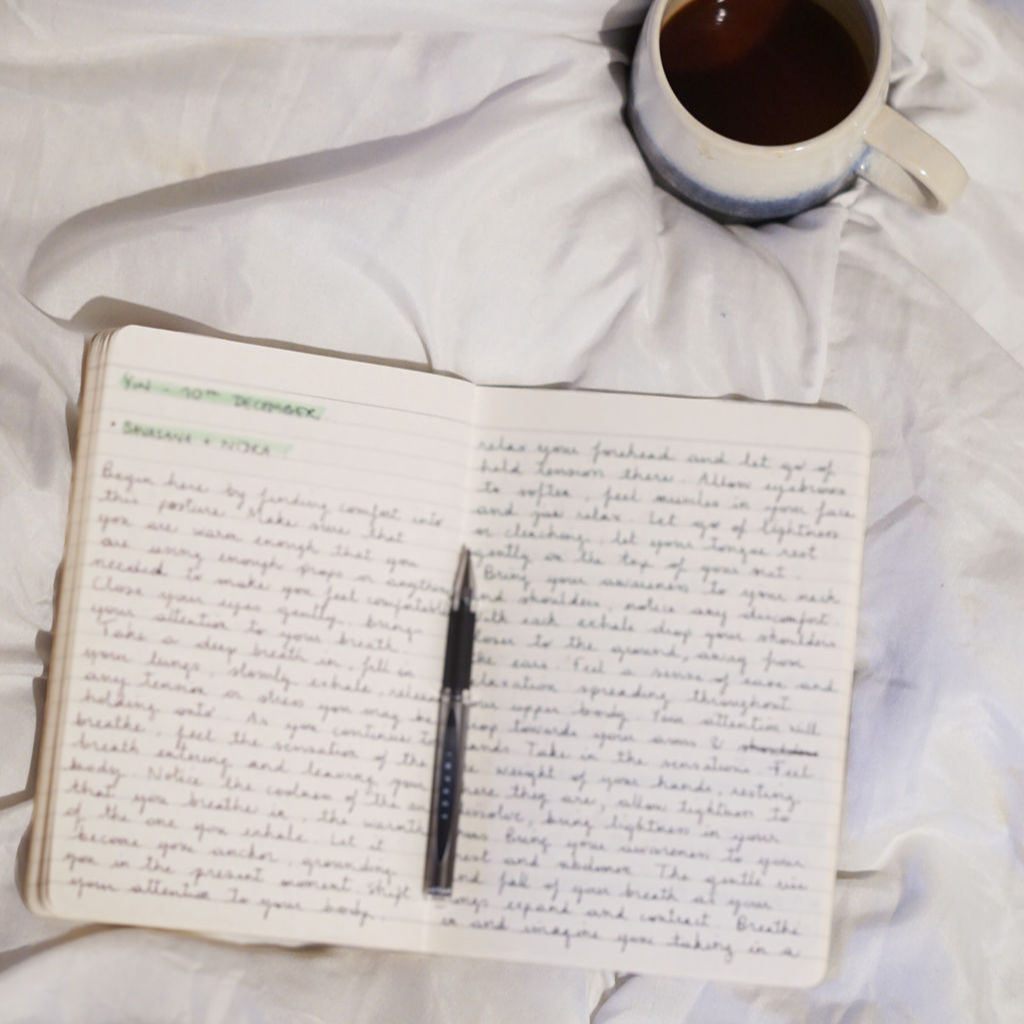 YIN - 10TH DECEMBER
• SAVASANA + NIDRA
Begin here by finding comfort into
this posture. Make sure that
you are warm enough that you
are using enough props or anything
needed to make you feel comfortable
Close your eyes gently, bring
your attention to your breath.
Take a deep breath in, fill in
your lungs, slowly exhale, release
any tension or stress you may be
holding onto. As you continue to
breathe, feel the sensation of the
breath entering and leaving your
body. Notice the coolness of the air
that you breathe in, the warmth
of the one you exhale. Let it
become your anchor, grounding
you in the present moment. Shift
your attention to your body.
relax your forehead and let go of
held tension there. Allow eyebrows
to soften, feel muscles in your face
and jaw relax. Let go of tightness
or clenching, let your tongue rest
gently on the top of your
Bring your awareness to your neck
and shoulders, notice any discomfort
with each exhale drop your shoulders
closer to the ground, away from
the ears. Feel a sense of ease and
relaxation spreading throughout
your upper body. Your attention will
drop towards your arms & shoulders
hands. Take in the sensations. Feel
the weight of your hands, resting
where they are, allow tightness to
dissolve, bring lightness in your
Bring your awareness to your
chest and abdomen. The gentle rise
and fall of your breath as your
lungs expand and contract. Breathe
in and imagine you taking in a